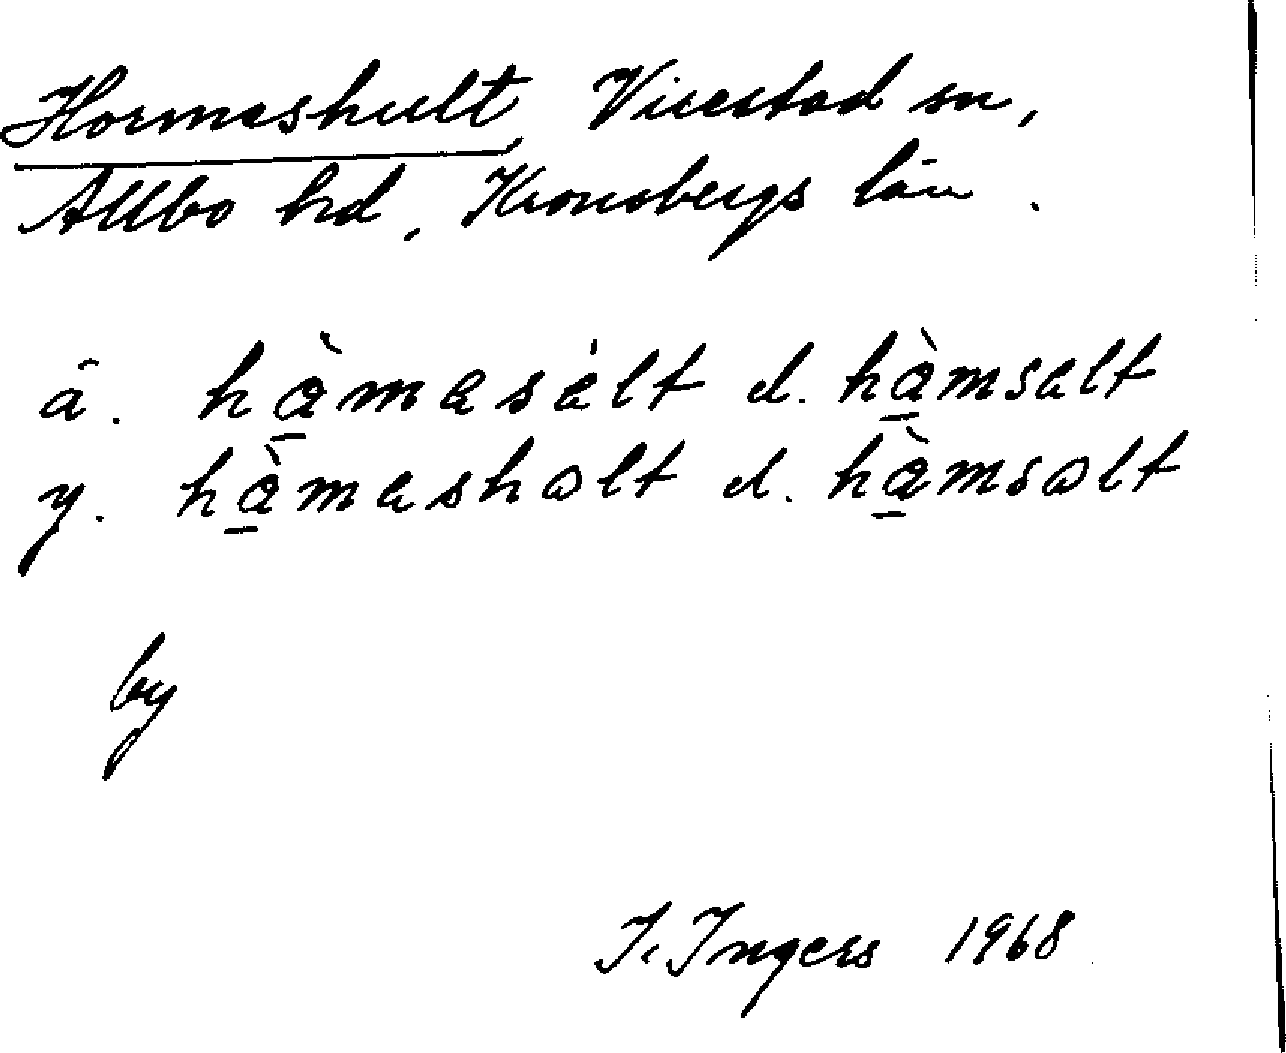 Hormeshult, Virestad sn,
Allbo hd, Kronobergs län.
ä. hạ̀mesèlt el. hạ̀mselt
y. hạ̀mesholt el. hạ̀msolt
by
I. Ingers 1968